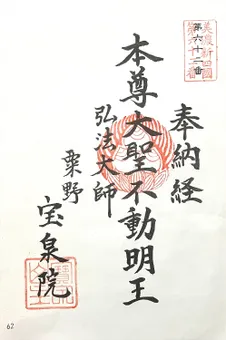 第六十二番
奉納経
本尊大聖不動明王
弘法大師
粟野
宝泉院
62